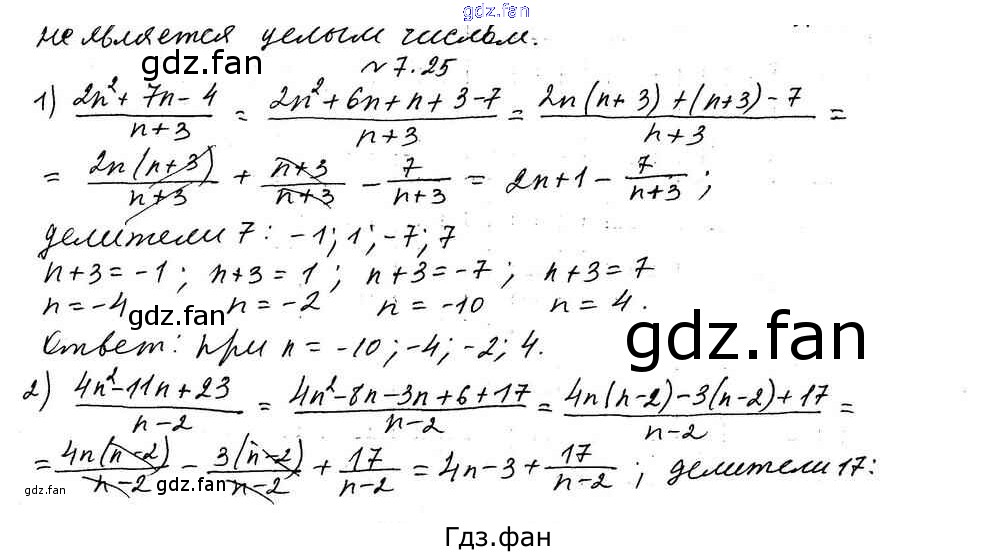 gdz.fan
не является целым числом.
gdz.fan
№ 7.25
1) (2n²+7n-4)/(n+3) = (2n²+6n+n+3-7)/(n+3) = (2n(n+3)+(n+3)-7)/(n+3) =
= (2n(n+3))/(n+3) + (n+3)/(n+3) - 7/(n+3) = 2n+1 - 7/(n+3) ;
делители 7: -1; 1; -7; 7
n+3=-1; n+3=1; n+3=-7; n+3=7
n=-4 n=-2 n=-10 n=4.
gdz.fan
gdz.fan
Ответ: при n=-10; -4; -2; 4.
2) (4n²-11n+23)/(n-2) = (4n²-8n-3n+6+17)/(n-2) = (4n(n-2)-3(n-2)+17)/(n-2) =
= (4n(n-2))/(n-2) - (3(n-2))/(n-2) + 17/(n-2) = 4n-3 + 17/(n-2) ; делители 17:
gdz.fan
gdz.fan
Гдз.фан